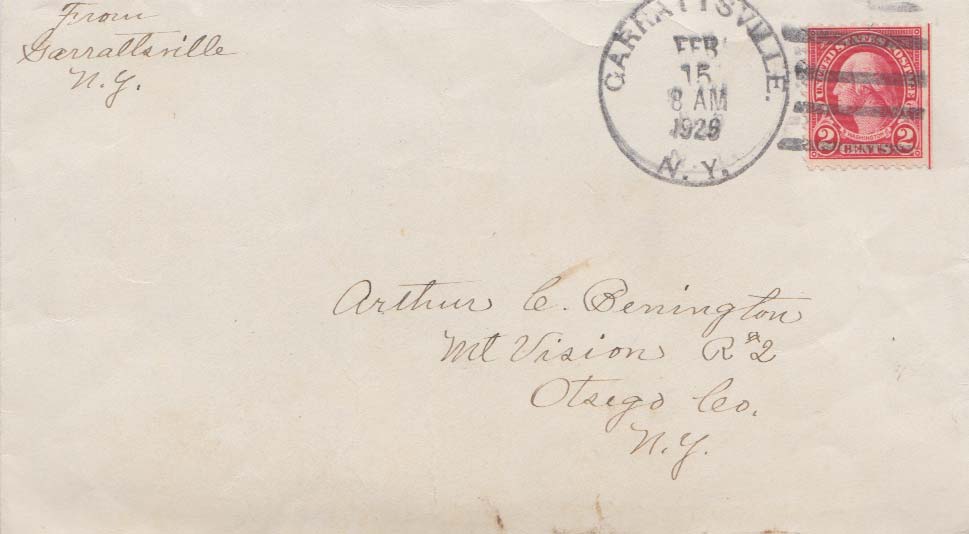 From
Garrattsville
N.Y.
GARRATTSVILLE.
FEB
15
8 AM
1926
N. Y.
UNITED STATES POSTAGE
WASHINGTON
2 CENTS 2
Arthur C. Benington
Mt Vision R#2
Otsego Co.
N.Y.